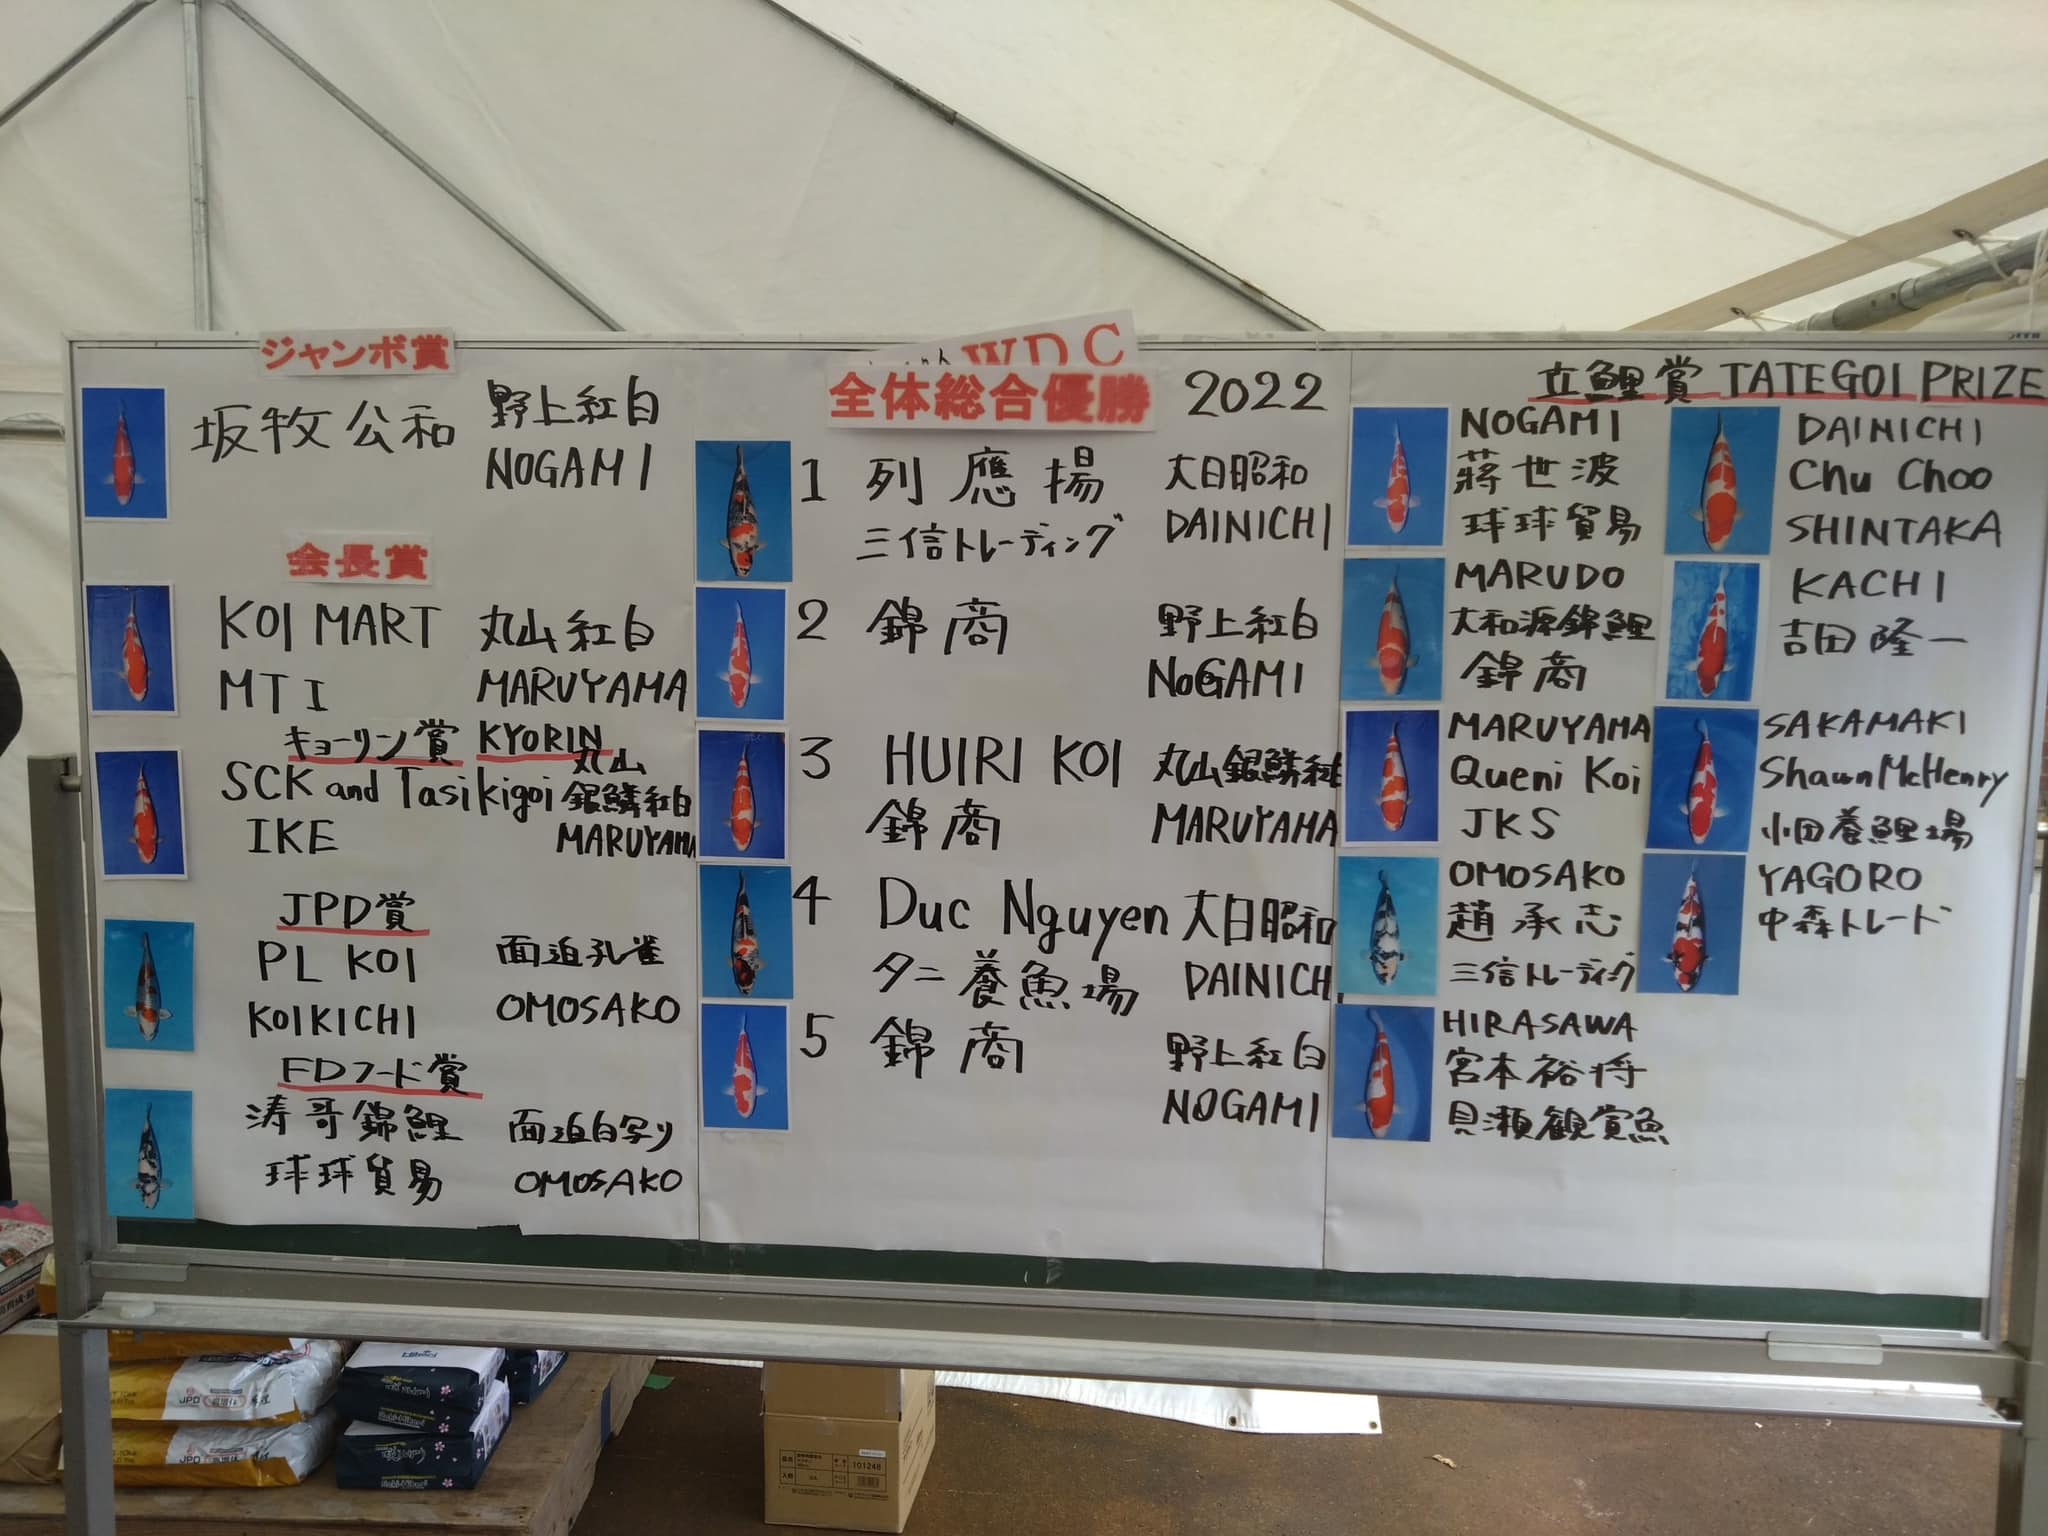 ジャンボ賞
坂牧公和 野上紅白
NOGAMI
会長賞
KOI MART 丸山紅白
MTI MARUYAMA
キョーリン賞 KYORIN
SCK and Tasikigoi 丸山
銀鱗紅白
IKE MARUYAMA
JPD賞
PL KOI 面迫孔雀
KOIKICHI OMOSAKO
FDフード賞
涛哥錦鯉 面迫白写り
球球貿易 OMOSAKO
WDC
全体総合優勝 2022
1 列應揚 大日昭和
三信トレーディング DAINICHI
2 錦商 野上紅白
NOGAMI
3 HUIRI KOI 丸山銀鱗紅白
錦商 MARUYAMA
4 Duc Nguyen 大日昭和
タニ養魚場 DAINICH
5 錦商 野上紅白
NOGAMI
立鯉賞 TATEGOI PRIZE
NOGAMI
蔣世波
球球貿易
MARUDO
大和源錦鯉
錦商
MARUYAMA
Queni Koi
JKS
OMOSAKO
趙承志
三信トレーディング
HIRASAWA
宮本裕将
貝瀬観賞魚
DAINICHI
Chu Choo
SHINTAKA
KACHI
吉田隆一
SAKAMAKI
Shawn McHenry
小田養鯉場
YAGORO
中森トレード
JPD
JPD
101248